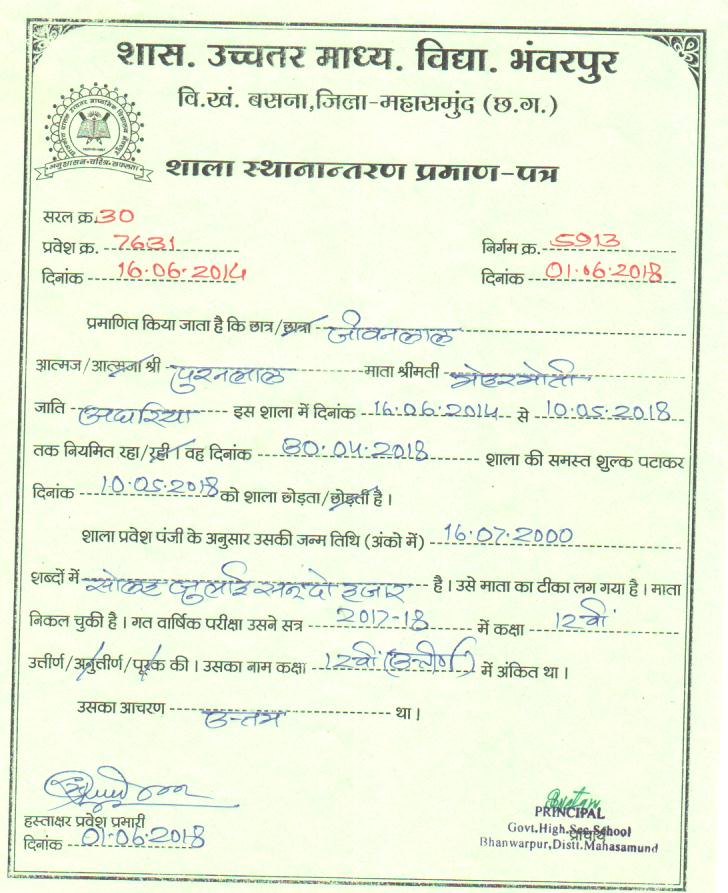 शास. उच्चतर माध्य. विद्या. भंवरपुर
वि.खं. बसना,जिला-महासमुंद (छ.ग.)
अनुशासन-चरित्र-सफलता
शाला स्थानान्तरण प्रमाण-पत्र
सरल क्र.30
प्रवेश क्र. 7631 निर्गम क्र. 5913
दिनांक 16.06.2014 दिनांक 01.06.2018
प्रमाणित किया जाता है कि छात्र/छात्रा जीवनलाल
आत्मज/आत्मजा श्री पुरनलाल माता श्रीमती
जाति अघरिया इस शाला में दिनांक 16.06.2014 से 10.05.2018
तक नियमित रहा/रही । वह दिनांक 30.04.2018 शाला की समस्त शुल्क पटाकर
दिनांक 10.05.2018 को शाला छोड़ता/छोड़ती है ।
शाला प्रवेश पंजी के अनुसार उसकी जन्म तिथि (अंको में) 16.07.2000
शब्दों में सोलह जुलाई सन् दो हजार है । उसे माता का टीका लग गया है । माता
निकल चुकी है । गत वार्षिक परीक्षा उसने सत्र 2017-18 में कक्षा 12वीं
उत्तीर्ण/अनुत्तीर्ण/पूरक की । उसका नाम कक्षा 12वीं (उत्तीर्ण) में अंकित था ।
उसका आचरण उत्तम था ।
हस्ताक्षर प्रवेश प्रभारी
दिनांक 01.06.2018
PRINCIPAL
प्राचार्य
Govt.High.Sec.School
Bhanwarpur,Distt.Mahasamund